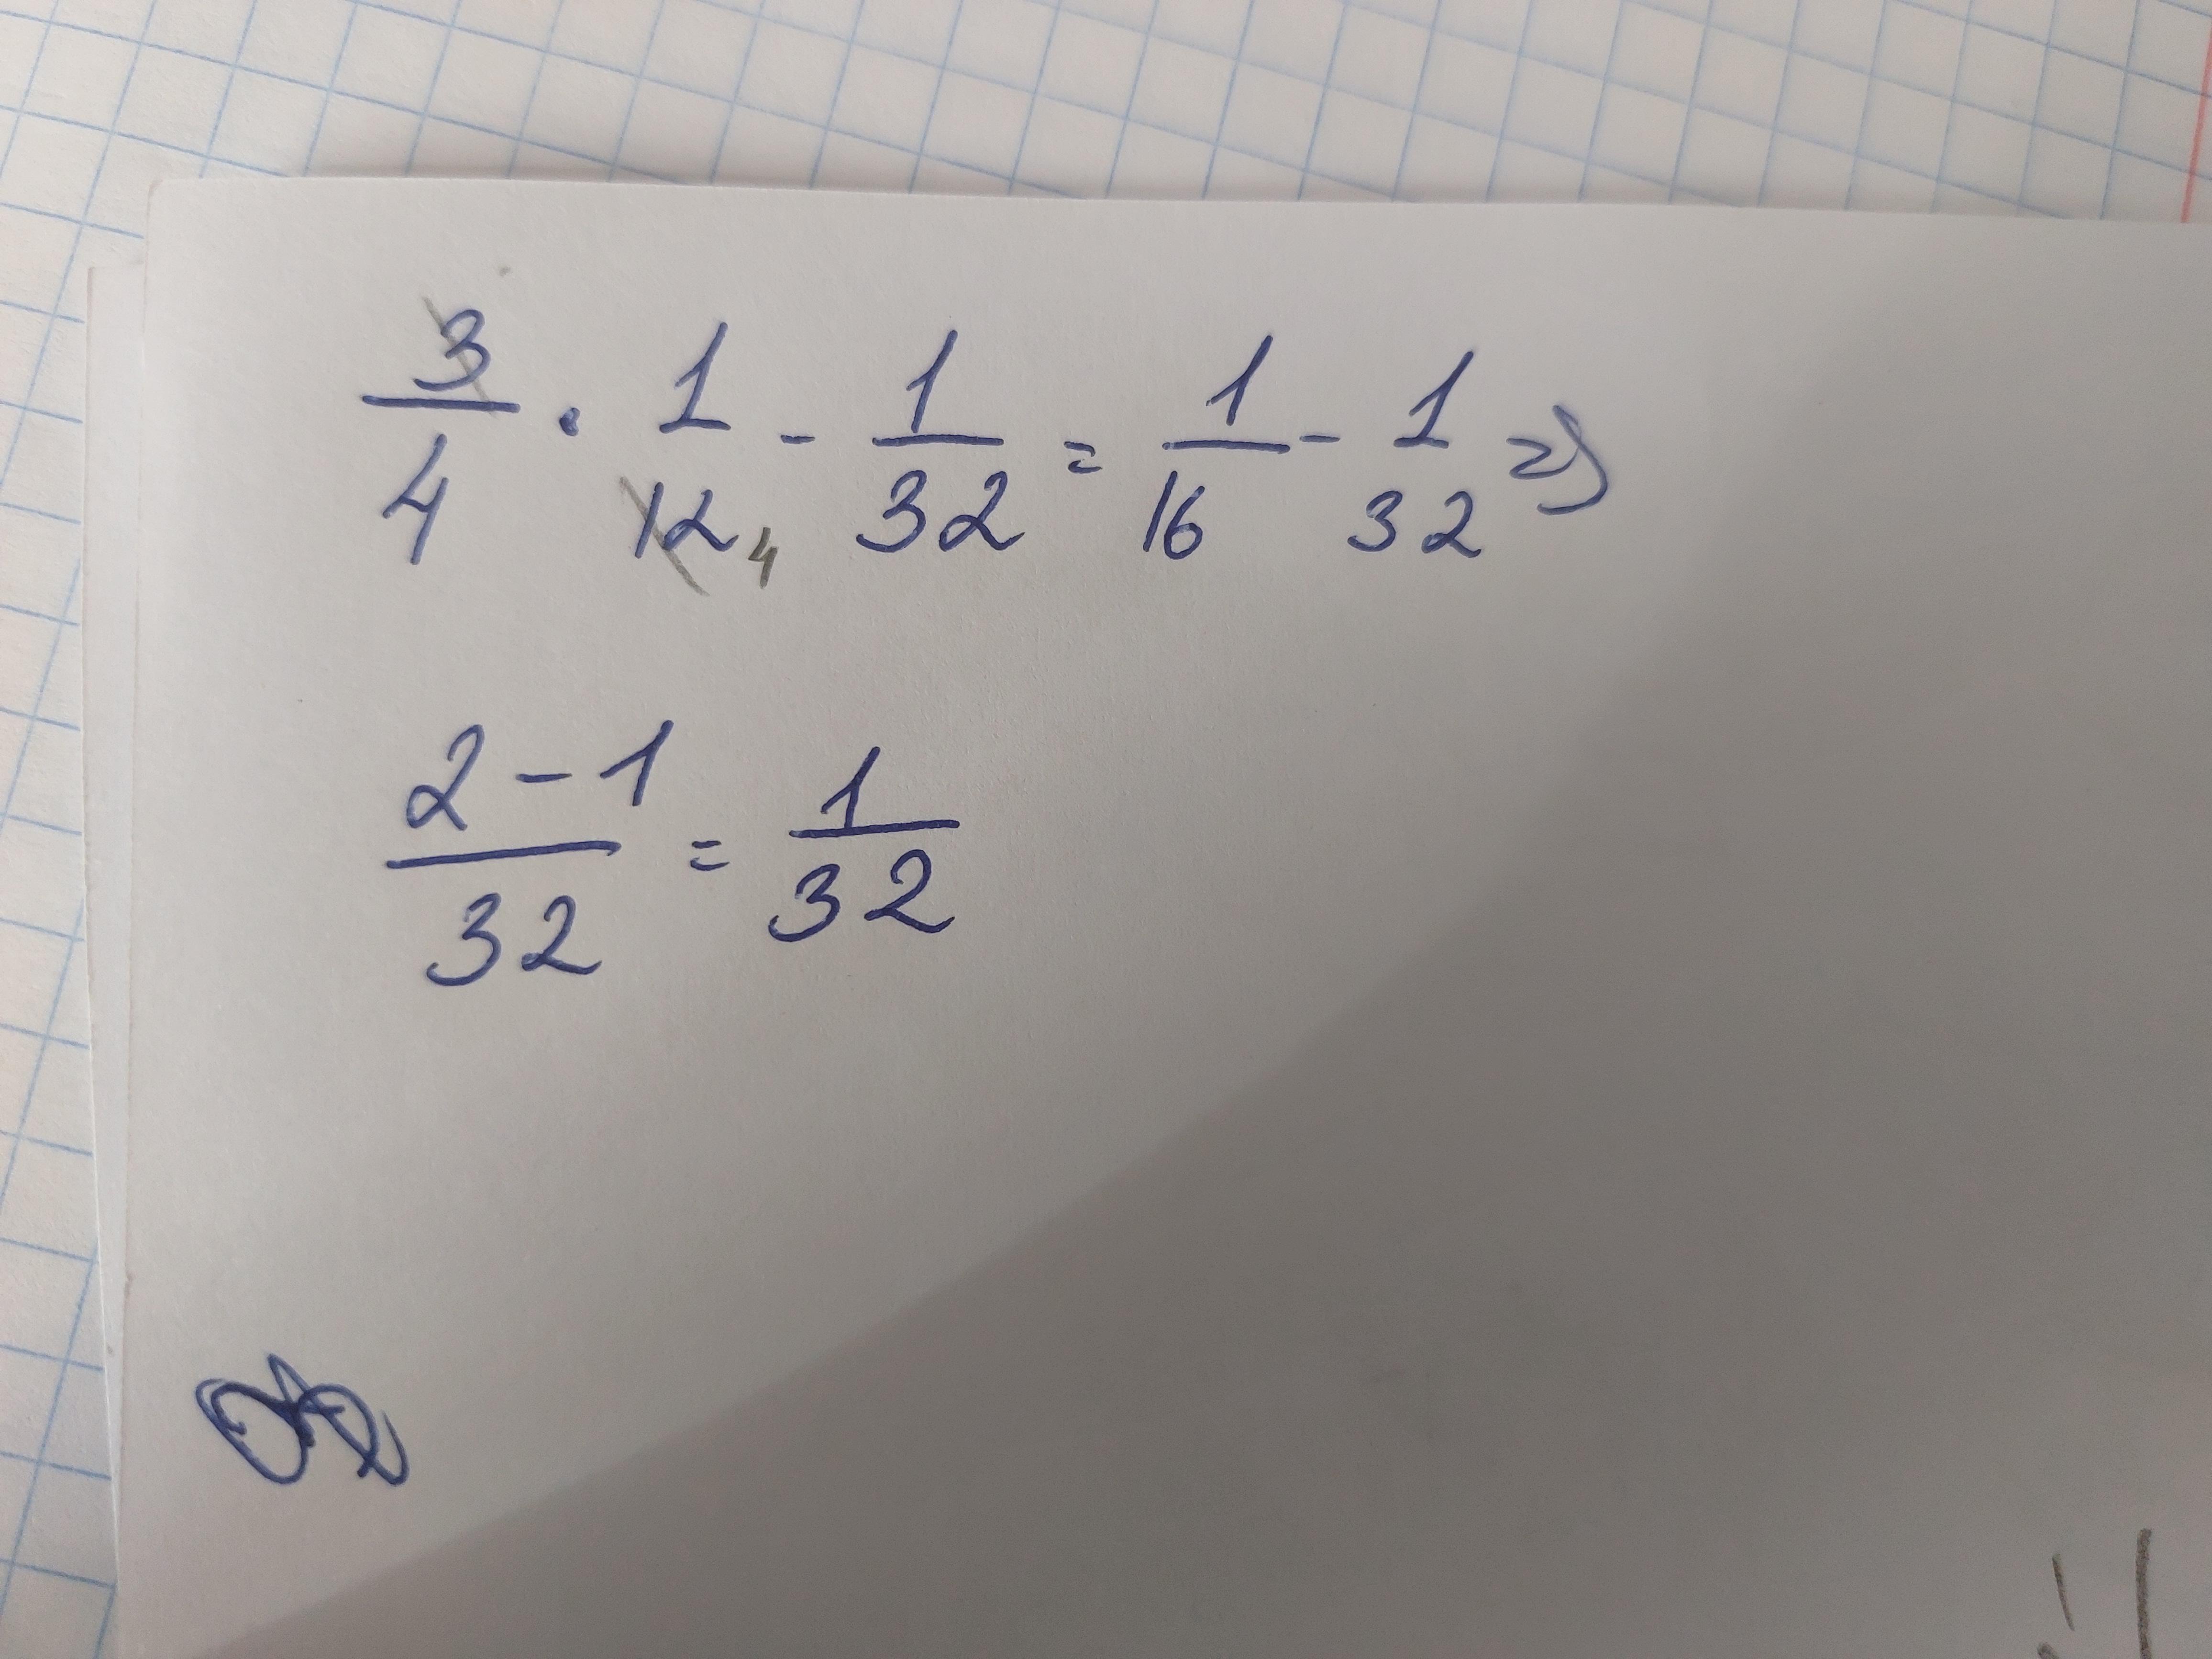 3/4 · 1/12 4 - 1/32 = 1/16 - 1/32 =>
2-1/32 = 1/32